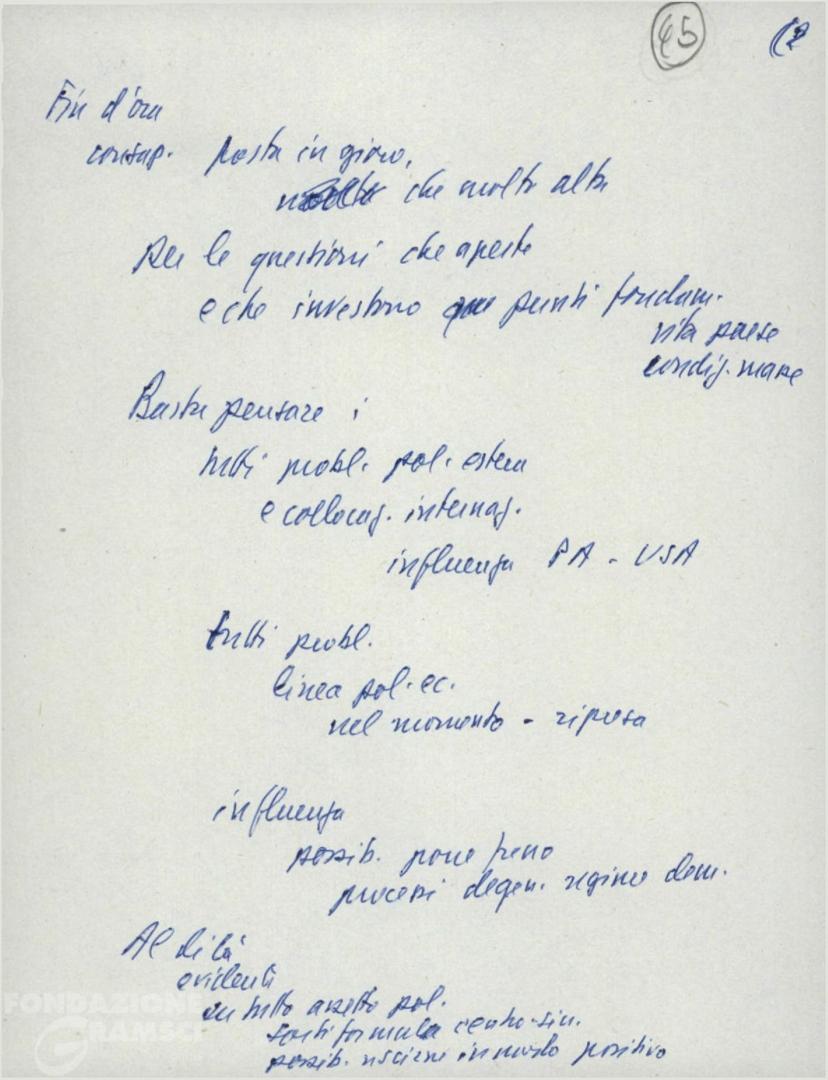 45 (2
Fin d'ora
consap. posta in gioco,
molto che molto alta
per le questioni che aperte
e che investono punti fondam.
vita paese
condiz. masse
Basta pensare :
tutti probl. pol. estera
e collocaz. internaz.
influenza PA - USA
tutti probl.
linea pol. ec.
nel momento - ripresa
influenza
possib. porre freno
processi degen. regime dem.
Al di là
evidenti
su tutto assetto pol.
sorti formula centro-sin.
possib. uscirne in modo positivo
FONDAZIONE
GRAMSCI